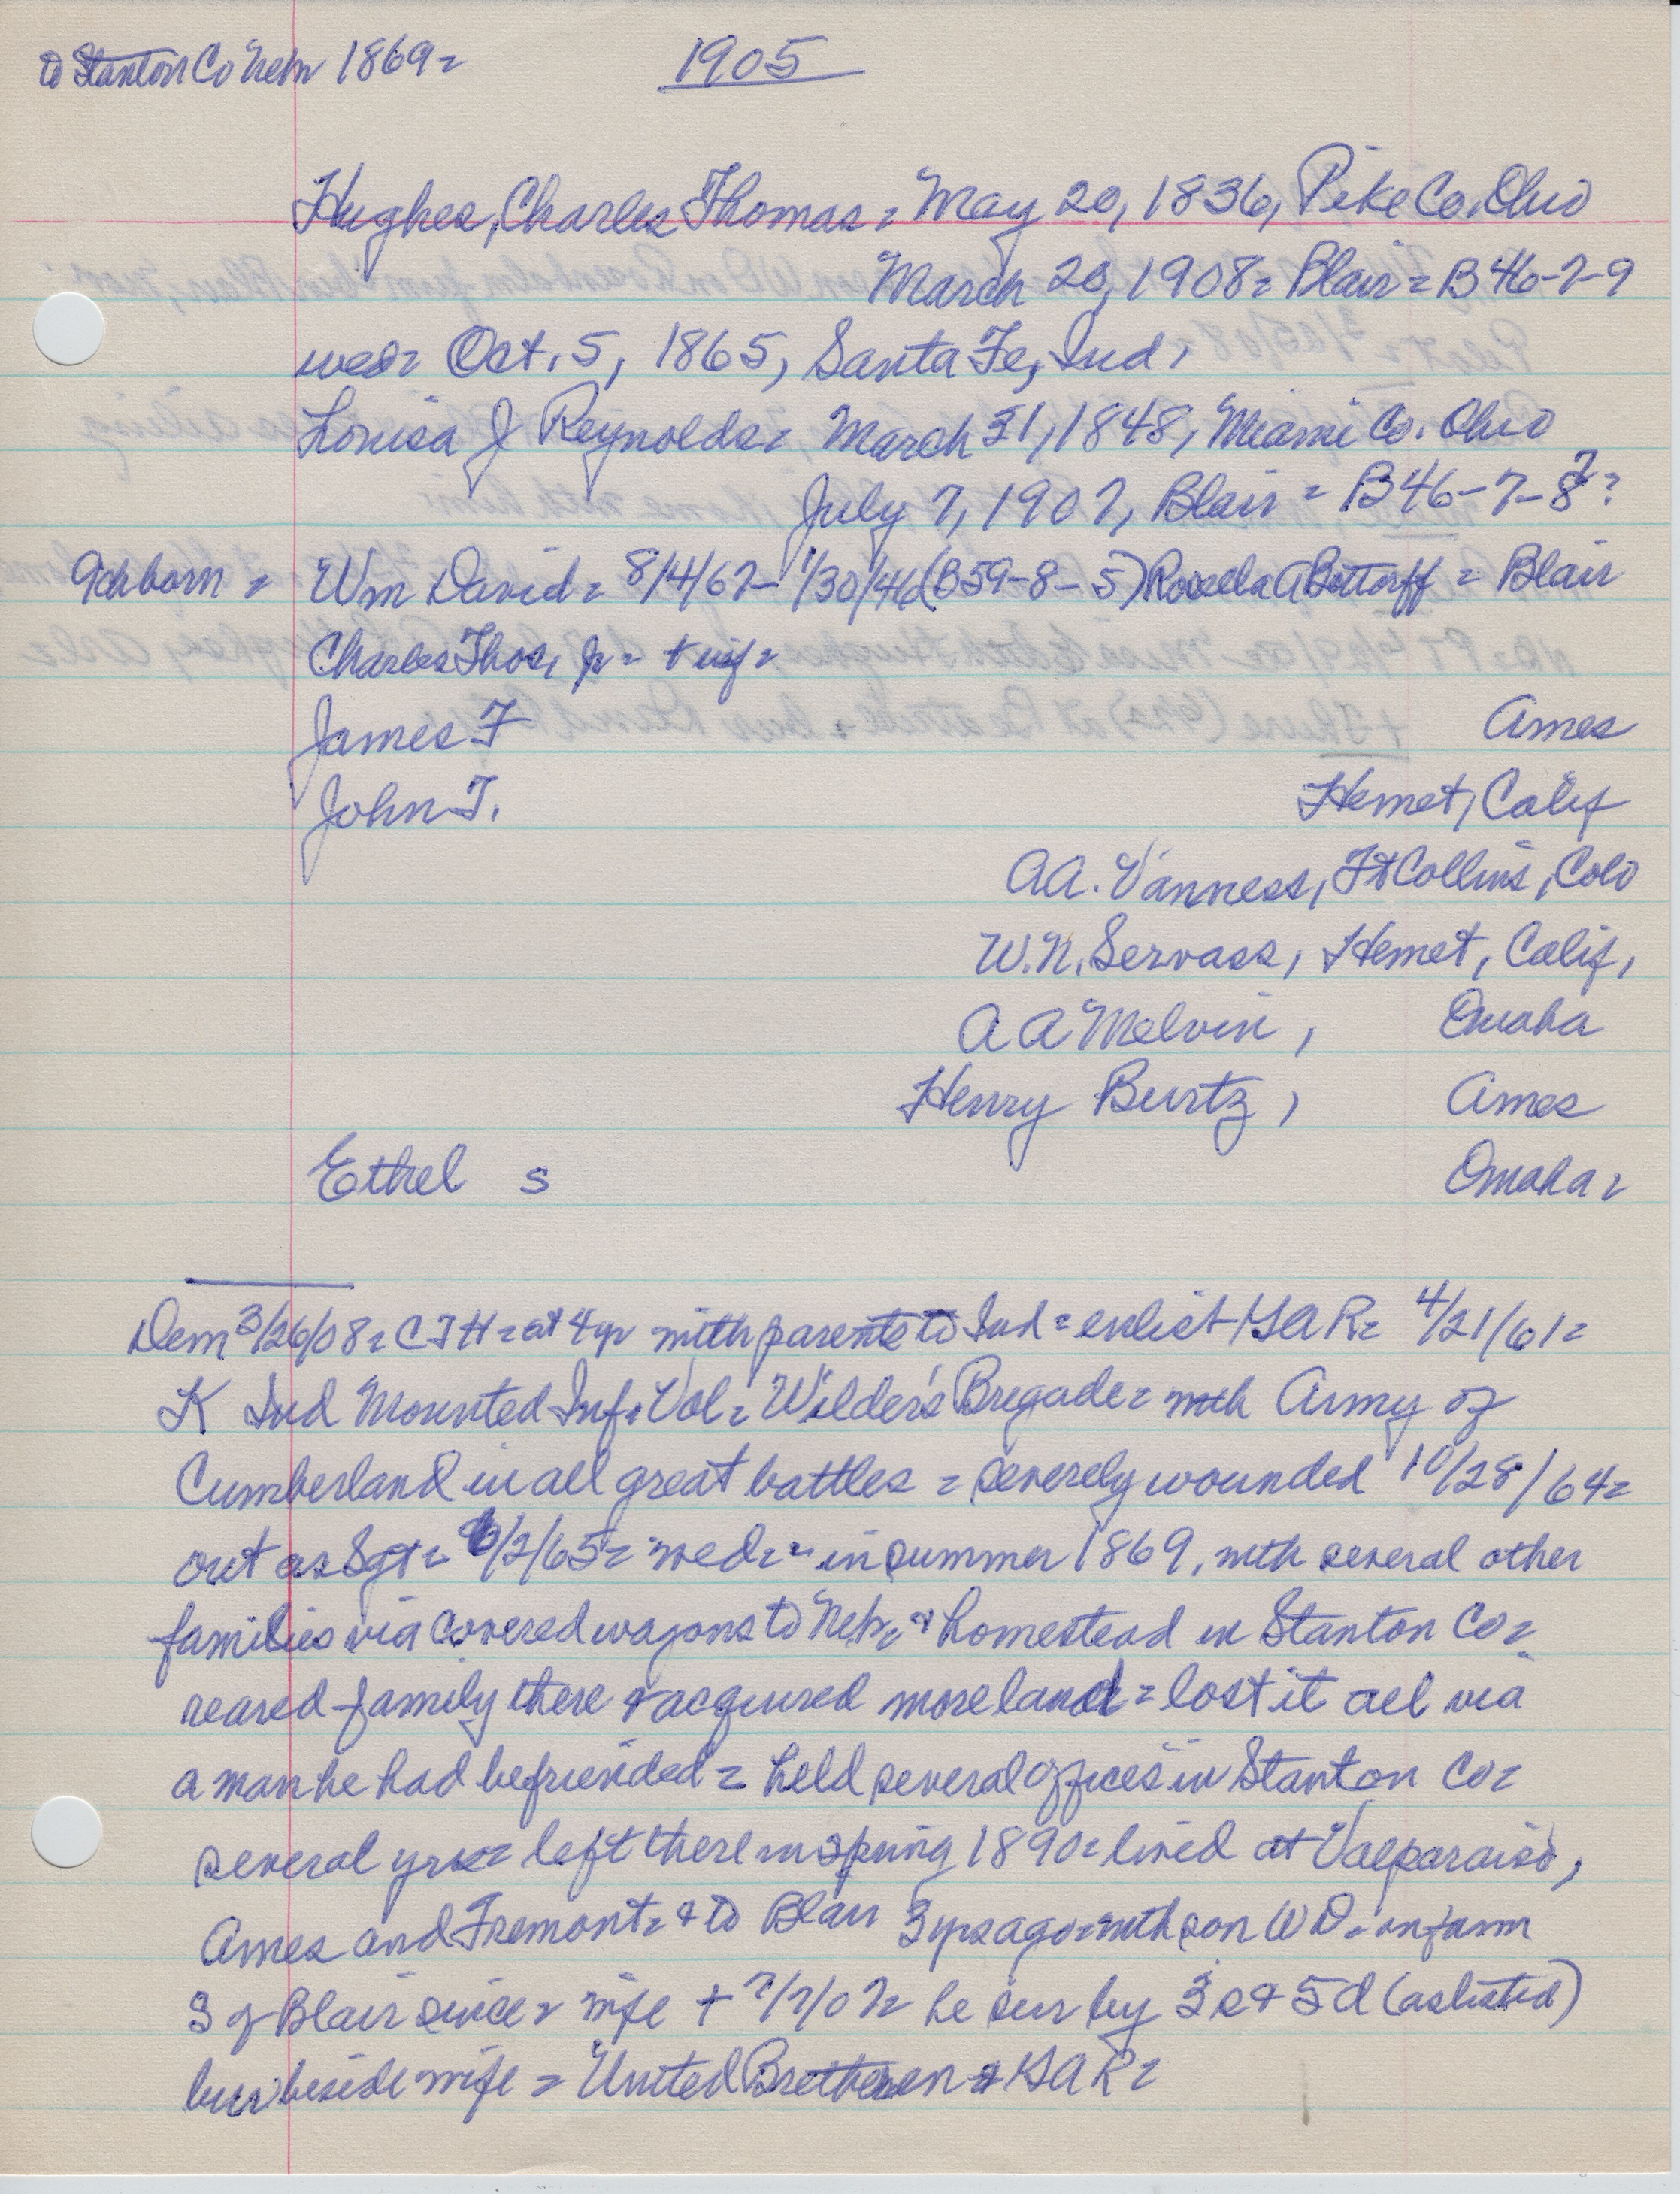 to Stanton Co Nebr 1869=
1905
Hughes, Charles Thomas = May 20, 1836, Pike Co. Ohio
March 20, 1908 = Blair = B46-7-9
wed = Oct. 5, 1865, Santa Fe, Ind,
Louisa J Reynolds = March 31, 1848, Miami Co. Ohio
July 7, 1907, Blair = B46-7-8?
9ch born = Wm David = 8/4/67- 1/30/46 (B59-8-5) Rosella A Bottorff = Blair
Charles Thos, Jr = + inf =
James F Ames
John T. Hemet, Calif
A A. Vanness, Ft Collins, Colo
W. N. Servass, Hemet, Calif,
A A Melvin, Omaha
Henry Burtz, Ames
Ethel s Omaha =
Dem 3/26/08 = C T H = at 4 yr with parents to Ind = enlist GAR = 4/21/61 =
K Ind Mounted Inf. Vol = Wilder's Brigade = with Army of
Cumberland in all great battles = severely wounded 10/28/64 =
out as Sgt = 6/2/65 = wed = " in summer 1869, with several other
families via covered wagons to Nebr = & homestead in Stanton Co =
reared family there & acquired more land = lost it all via
a man he had befriended = held several offices in Stanton Co =
several yrs = left there in spring 1890 = lived at Valparaiso,
Ames and Fremont = & to Blair 3 yrs ago = with son W D = on farm
S of Blair since = wife + 7/7/07 = he sur by 3 s & 5 d (as listed)
bur beside wife = United Bretheren & GAR =